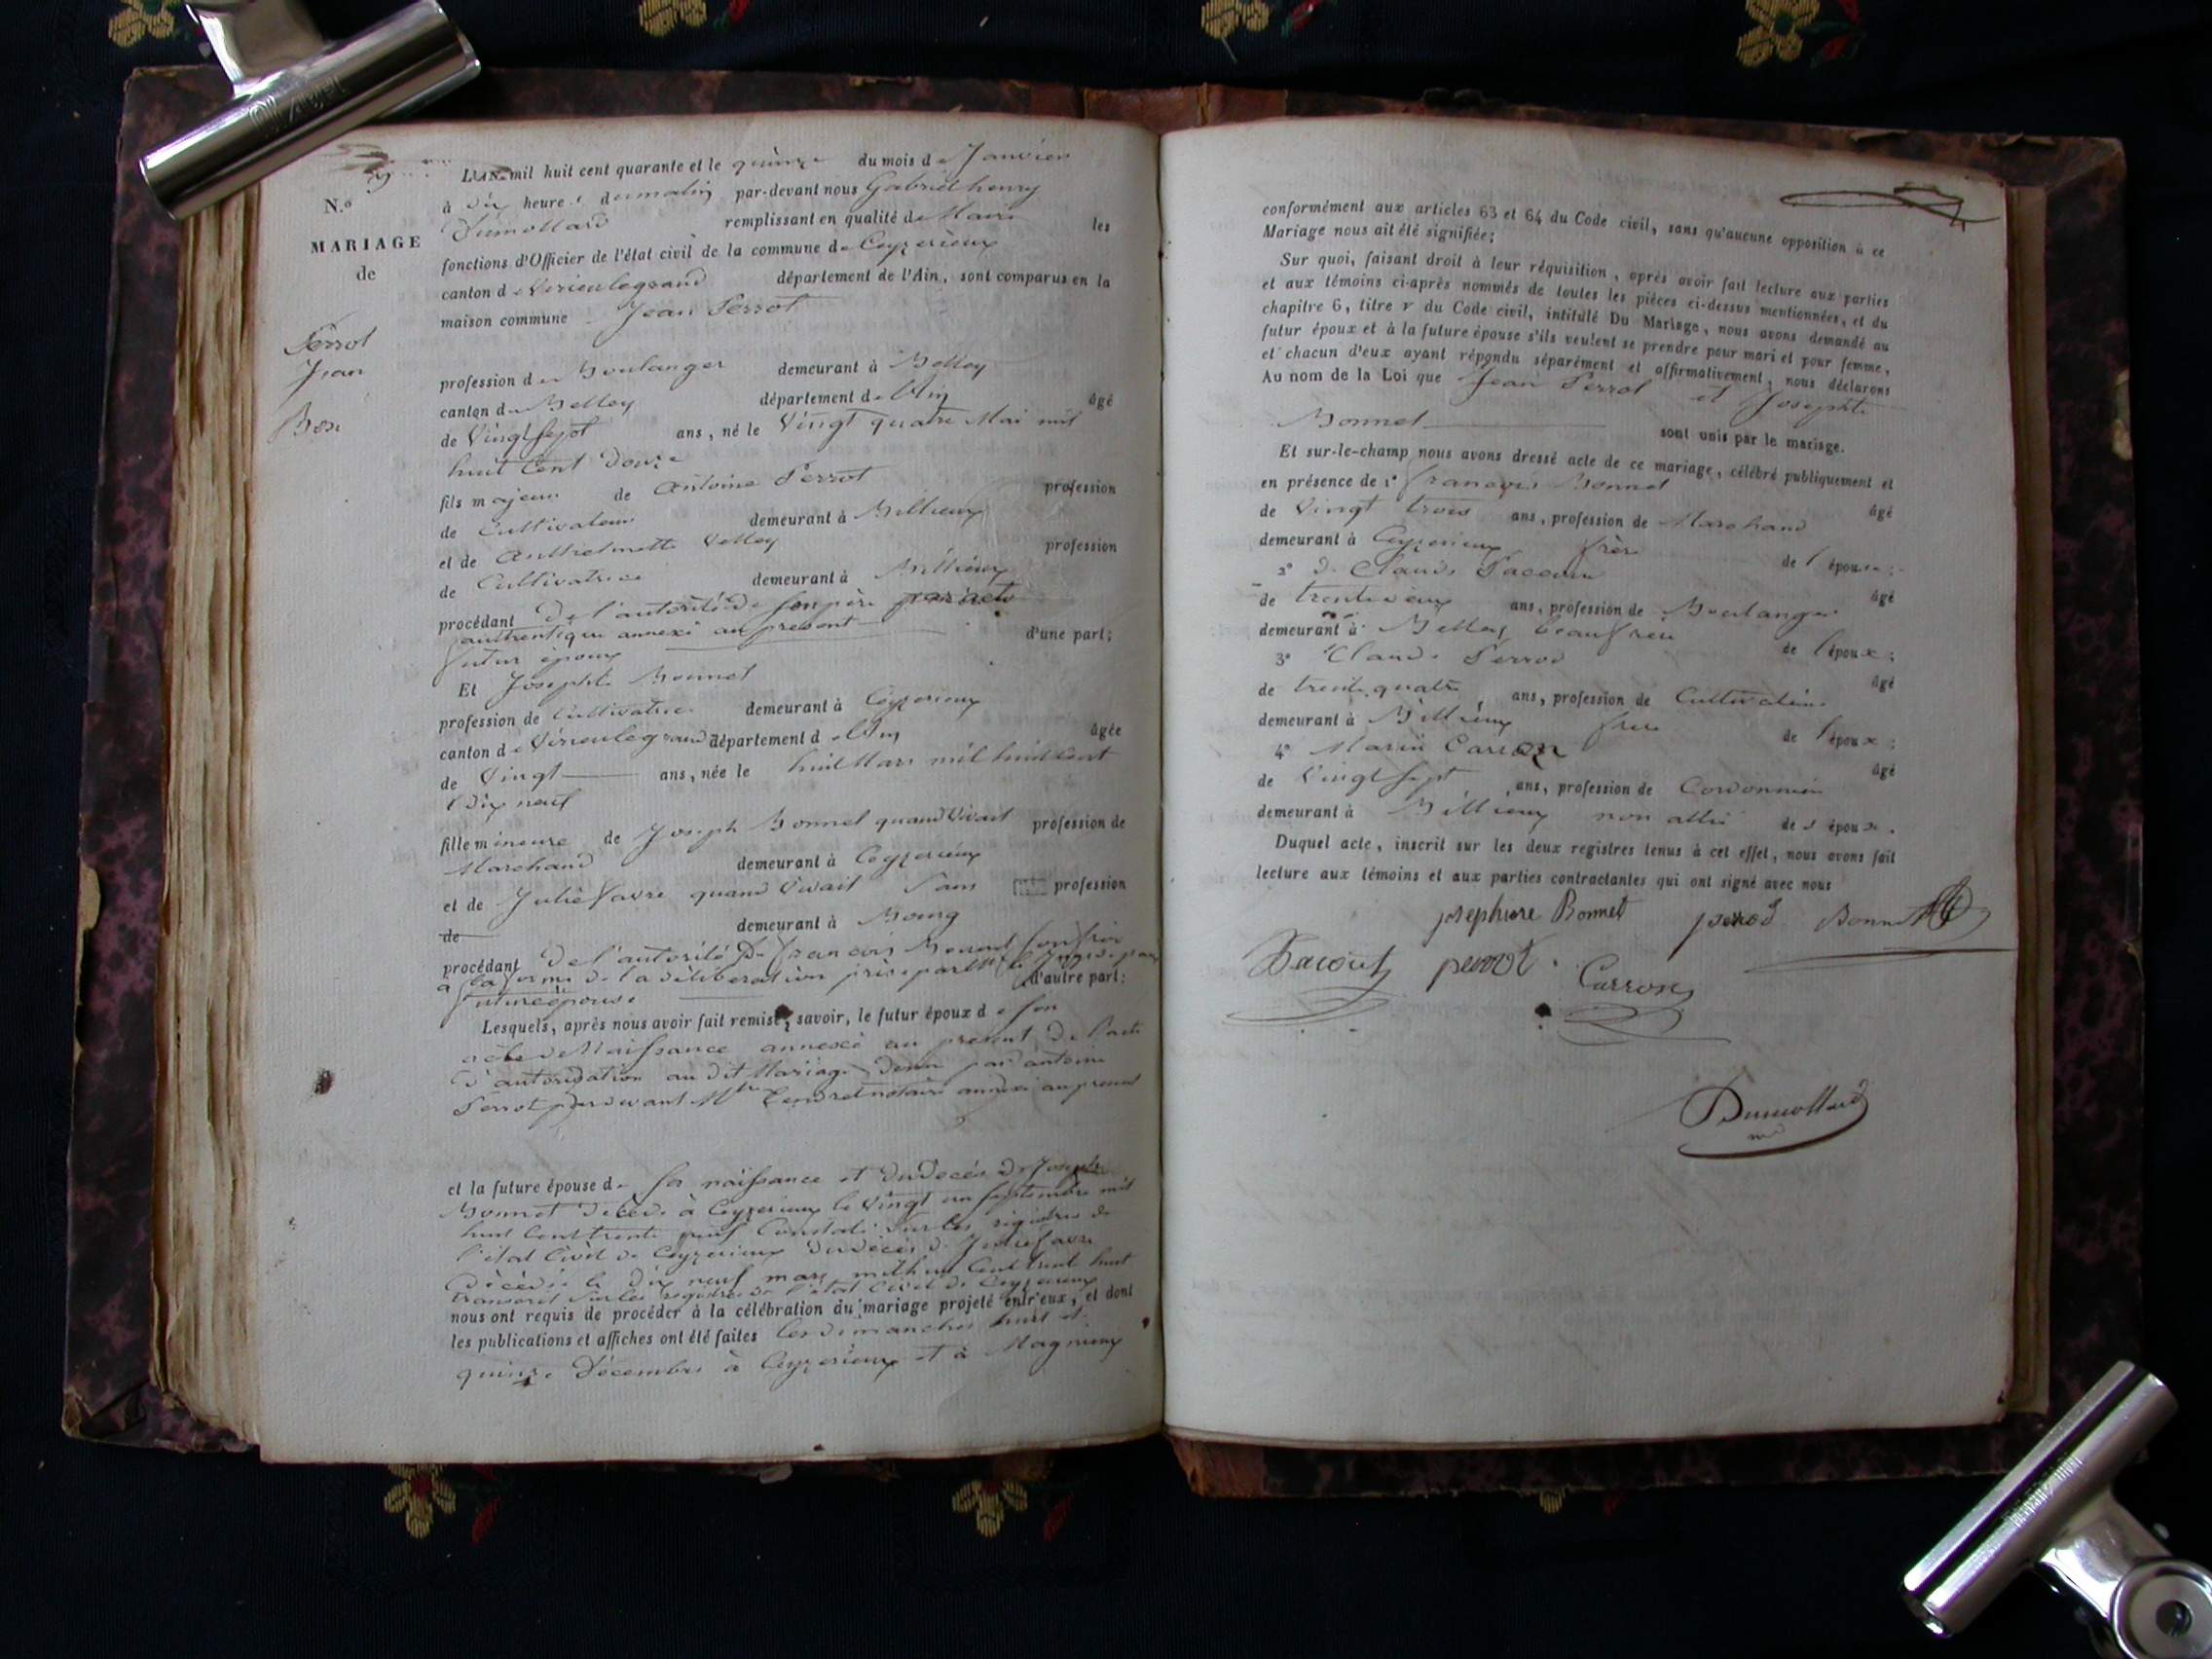 N.º
MARIAGE
de
Perrot
Jean
L'AN mil huit cent quarante et le quinze du mois de Janvier
à dix heures du matin par-devant nous Gabriel henry
Dumollard remplissant en qualité de Maire les
fonctions d'Officier de l'état civil de la commune de Ceyzerieux
canton de Virieulegrand département de l'Ain, sont comparus en la
maison commune Jean Perrot
profession de Boulanger demeurant à Belley
canton de Belley département de l'Ain âgé
de Vingt sept ans, né le Vingt quatre Mai mil
huit Cent Douze
fils majeur de Antoine Perrot profession
de Cultivateur demeurant à Billieux
et de Anthelmette Velley profession
de Cultivatrice demeurant à Billieux
procédant De l'autorité de son père par acte
authentique annexé au présent d'une part;
futur époux
Et Josephte Bonnet
profession de Cultivatrice demeurant à Ceyzerieux
canton de Virieulegrand département de l'Ain âgée
de Vingt ans, née le huit Mars mil huit Cent
Dix neuf
fille mineure de Joseph Bonnet quand Vivait profession de
Marchand demeurant à Ceyzerieux
et de Julie favre quand Vivait Sans profession
de demeurant à
procédant De l'autorité De francois Bonnet son frère
à la forme de la déliberation prise par d'autre part;
future épouse
Lesquels, après nous avoir fait remise, savoir, le futur époux de son
acte de Naissance annexé au présent De l'acte
d'autorisation au dit Mariage Donné par antoine
Perrot pardevant Mtre notaire annexé au présent
et la future épouse de sa naissance et du Decès de Joseph
Bonnet décédé à Ceyzerieux le Vingt un septembre mil
huit Cent trente neuf Constaté sur les registres de
l'état Civil de Ceyzerieux du décès de Julie favre
Décédée le Dix neuf mars mil huit Cent trente huit
transcrit sur les registres de l'état Civil de Ceyzerieux
nous ont requis de procéder à la célébration du mariage projeté entr'eux, et dont
les publications et affiches ont été faites les dimanches huit et
quinze Décembre à Ceyzerieux et à Magnieux
conformément aux articles 63 et 64 du Code civil, sans qu'aucune opposition à ce
Mariage nous ait été signifiée;
Sur quoi, faisant droit à leur réquisition, après avoir fait lecture aux parties
et aux témoins ci-après nommés de toutes les pièces ci-dessus mentionnées, et du
chapitre 6, titre V du Code civil, intitulé Du Mariage, nous avons demandé au
futur époux et à la future épouse s'ils veulent se prendre pour mari et pour femme,
et chacun d'eux ayant répondu séparément et affirmativement, nous déclarons
Au nom de la Loi que Jean Perrot et Josephte
Bonnet sont unis par le mariage.
Et sur-le-champ nous avons dressé acte de ce mariage, célébré publiquement et
en présence de 1º francois Bonnet âgé
de Vingt trois ans, profession de Marchand
demeurant à Ceyzerieux frère de l'épouse;
2º de Claude âgé
de trente deux ans, profession de Boulanger
demeurant à Belley beaufrere de l'époux;
3º Claude Perrod âgé
de trente quatre ans, profession de Cultivateur
demeurant à Billieux frere de l'époux;
4º Marin Carron âgé
de Vingt sept ans, profession de Cordonnier
demeurant à Billieux non allié des époux.
Duquel acte, inscrit sur les deux registres tenus à cet effet, nous avons fait
lecture aux témoins et aux parties contractantes qui ont signé avec nous
Bonnet perrod Bonnet
perrot Carron
Dumollard